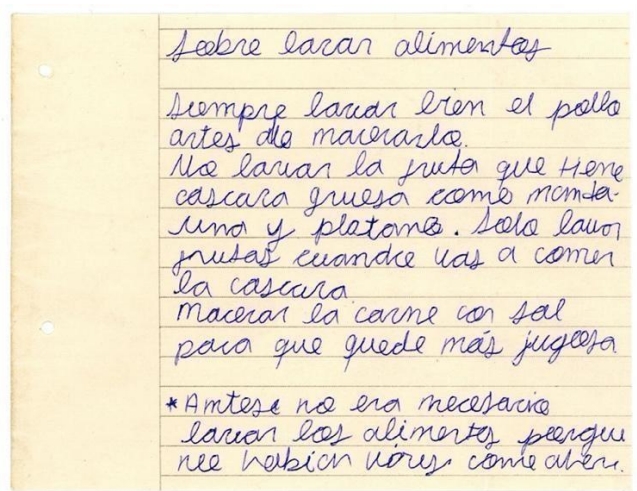 Sobre lavar alimentos
Siempre lavar bien el pollo
antes de macerarlo.
No lavar la fruta que tiene
cascara gruesa como manda-
rina y platano. Solo lavar
frutas cuando vas a comer
la cascara
macerar la carne con sal
para que quede más jugosa
*Antes no era necesario
lavar los alimentos porque
no habian virus como ahora.